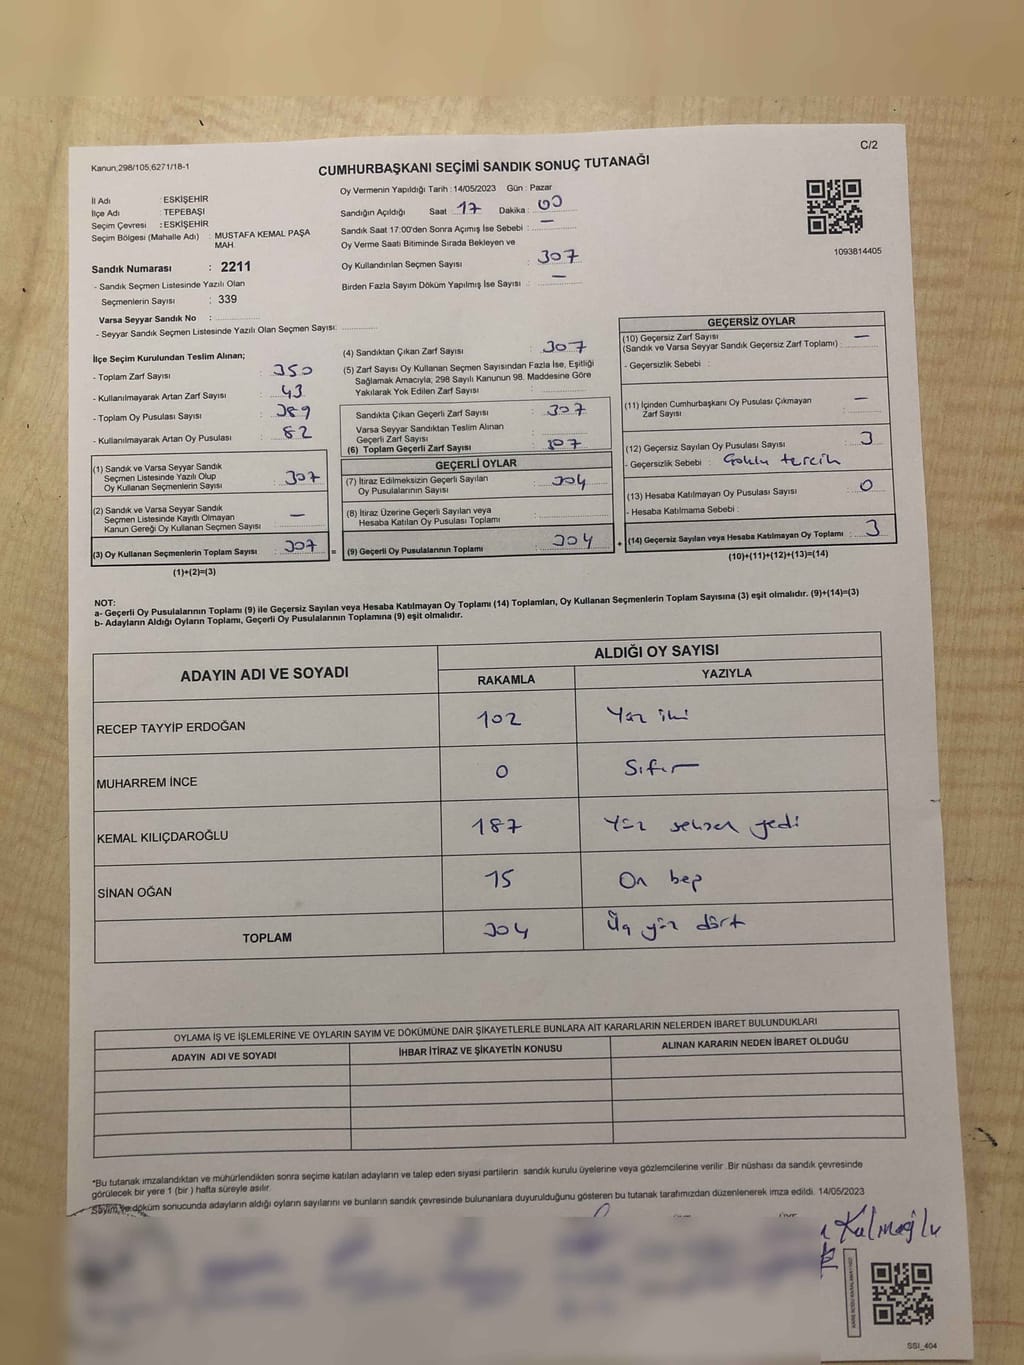 Kanun,298/105,6271/18-1
C/2
CUMHURBAŞKANI SEÇİMİ SANDIK SONUÇ TUTANAĞI
İl Adı : ESKİŞEHİR
İlçe Adı : TEPEBAŞI
Seçim Çevresi : ESKİŞEHİR
Seçim Bölgesi (Mahalle Adı) : MUSTAFA KEMAL PAŞA
MAH.
Sandık Numarası : 2211
- Sandık Seçmen Listesinde Yazılı Olan
Seçmenlerin Sayısı : 339
Varsa Seyyar Sandık No :
- Seyyar Sandık Seçmen Listesinde Yazılı Olan Seçmen Sayısı:
Oy Vermenin Yapıldığı Tarih : 14/05/2023 Gün : Pazar
Sandığın Açıldığı Saat 17 Dakika : 00
Sandık Saat 17:00'den Sonra Açılmış İse Sebebi : —
Oy Verme Saati Bitiminde Sırada Bekleyen ve
Oy Kullandırılan Seçmen Sayısı : 307
Birden Fazla Sayım Döküm Yapılmış İse Sayısı : —
1093814405
İlçe Seçim Kurulundan Teslim Alınan;
- Toplam Zarf Sayısı : 350
- Kullanılmayarak Artan Zarf Sayısı : 43
- Toplam Oy Pusulası Sayısı : 389
- Kullanılmayarak Artan Oy Pusulası : 82
(1) Sandık ve Varsa Seyyar Sandık
Seçmen Listesinde Yazılı Olup
Oy Kullanan Seçmenlerin Sayısı : 307
(2) Sandık ve Varsa Seyyar Sandık
Seçmen Listesinde Kayıtlı Olmayan
Kanun Gereği Oy Kullanan Seçmen Sayısı : —
(3) Oy Kullanan Seçmenlerin Toplam Sayısı : 307
(1)+(2)=(3)
(4) Sandıktan Çıkan Zarf Sayısı : 307
(5) Zarf Sayısı Oy Kullanan Seçmen Sayısından Fazla İse, Eşitliği
Sağlamak Amacıyla; 298 Sayılı Kanunun 98. Maddesine Göre
Yakılarak Yok Edilen Zarf Sayısı :
Sandıkta Çıkan Geçerli Zarf Sayısı : 307
Varsa Seyyar Sandıktan Teslim Alınan
Geçerli Zarf Sayısı :
(6) Toplam Geçerli Zarf Sayısı : 307
GEÇERLİ OYLAR
(7) İtiraz Edilmeksizin Geçerli Sayılan
Oy Pusulalarının Sayısı : 304
(8) İtiraz Üzerine Geçerli Sayılan veya
Hesaba Katılan Oy Pusulası Toplamı :
= (9) Geçerli Oy Pusulalarının Toplamı : 304
GEÇERSİZ OYLAR
(10) Geçersiz Zarf Sayısı
(Sandık ve Varsa Seyyar Sandık Geçersiz Zarf Toplamı) : —
- Geçersizlik Sebebi :
(11) İçinden Cumhurbaşkanı Oy Pusulası Çıkmayan
Zarf Sayısı : —
(12) Geçersiz Sayılan Oy Pusulası Sayısı : 3
- Geçersizlik Sebebi : Çoklu tercih
(13) Hesaba Katılmayan Oy Pusulası Sayısı : 0
- Hesaba Katılmama Sebebi :
+ (14) Geçersiz Sayılan veya Hesaba Katılmayan Oy Toplamı : 3
(10)+(11)+(12)+(13)=(14)
NOT:
a- Geçerli Oy Pusulalarının Toplamı (9) ile Geçersiz Sayılan veya Hesaba Katılmayan Oy Toplamı (14) Toplamları, Oy Kullanan Seçmenlerin Toplam Sayısına (3) eşit olmalıdır. (9)+(14)=(3)
b- Adayların Aldığı Oyların Toplamı, Geçerli Oy Pusulalarının Toplamına (9) eşit olmalıdır.
ADAYIN ADI VE SOYADI
ALDIĞI OY SAYISI
RAKAMLA YAZIYLA
RECEP TAYYİP ERDOĞAN 102 Yüz iki
MUHARREM İNCE 0 Sıfır
KEMAL KILIÇDAROĞLU 187 Yüz seksen yedi
SİNAN OĞAN 15 On beş
TOPLAM 304 Üç yüz dört
OYLAMA İŞ VE İŞLEMLERİNE VE OYLARIN SAYIM VE DÖKÜMÜNE DAİR ŞİKAYETLERLE BUNLARA AİT KARARLARIN NELERDEN İBARET BULUNDUKLARI
ADAYIN ADI VE SOYADI İHBAR İTİRAZ VE ŞİKAYETİN KONUSU ALINAN KARARIN NEDEN İBARET OLDUĞU
*Bu tutanak imzalandıktan ve mühürlendikten sonra seçime katılan adayların ve talep eden siyasi partilerin sandık kurulu üyelerine veya gözlemcilerine verilir .Bir nüshası da sandık çevresinde
görülecek bir yere 1 (bir ) hafta süreyle asılır.
Sayım ve döküm sonucunda adayların aldığı oyların sayılarını ve bunların sandık çevresinde bulunanlara duyurulduğunu gösteren bu tutanak tarafımızdan düzenlenerek imza edildi. 14/05/2023
SSI_404